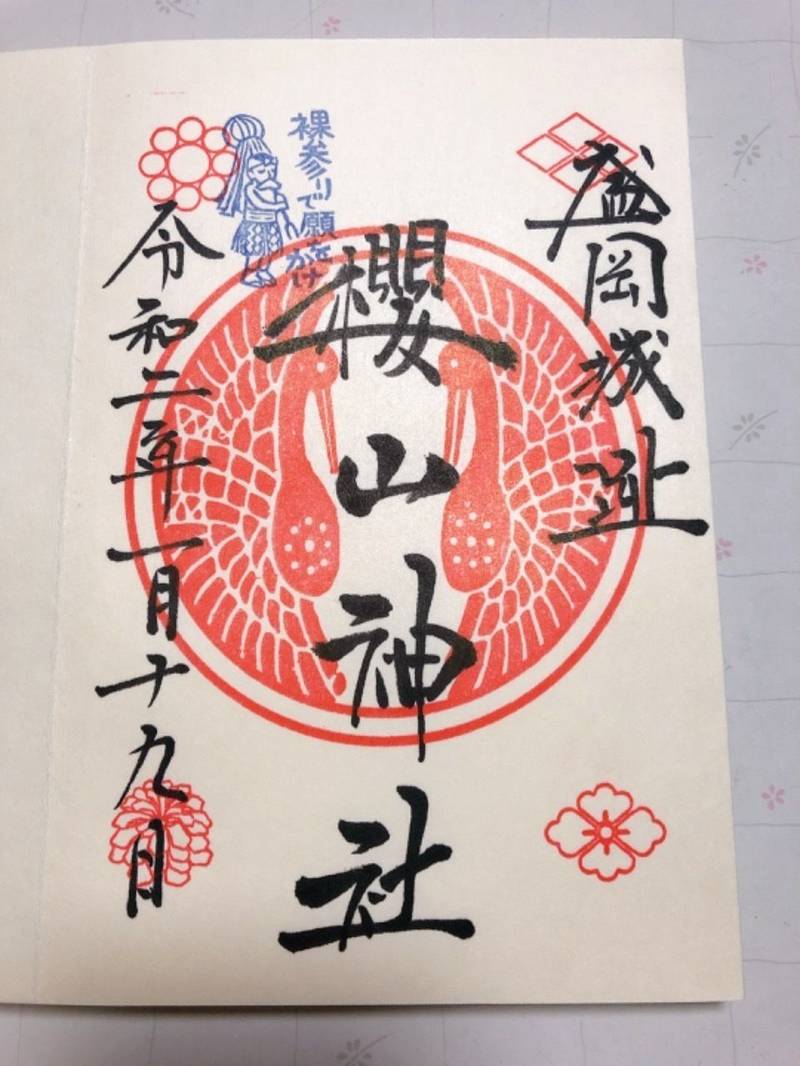 盛岡城址
櫻山神社
裸参りで願をかけ
令和二年一月十九日